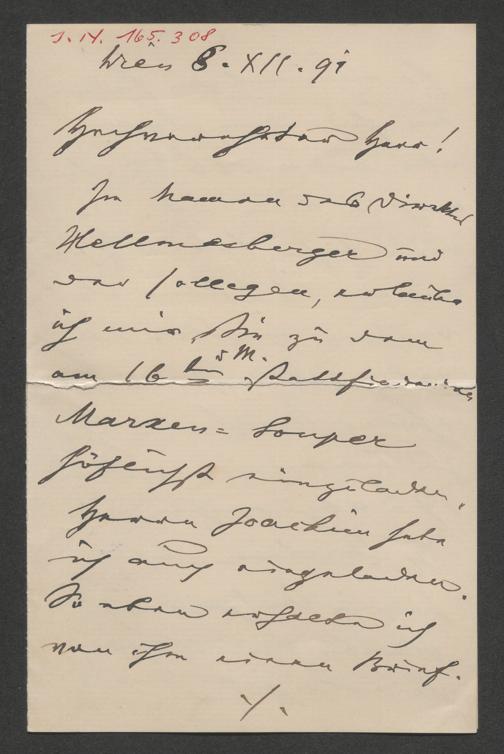 J. N. 165.308
Wien 8. XII. 91
Hochverehrter Herr!
Im Namen des Direktors
Hellmesberger und
der Collegen, erlaube
ich mir Sie zu dem
am 16ten d. M. stattfindenden
Marxen= Souper
höflichst einzuladen,
Herrn Joachim habe
ich auch eingeladen.
So eben erhalte ich
von ihm einen Brief.
./.